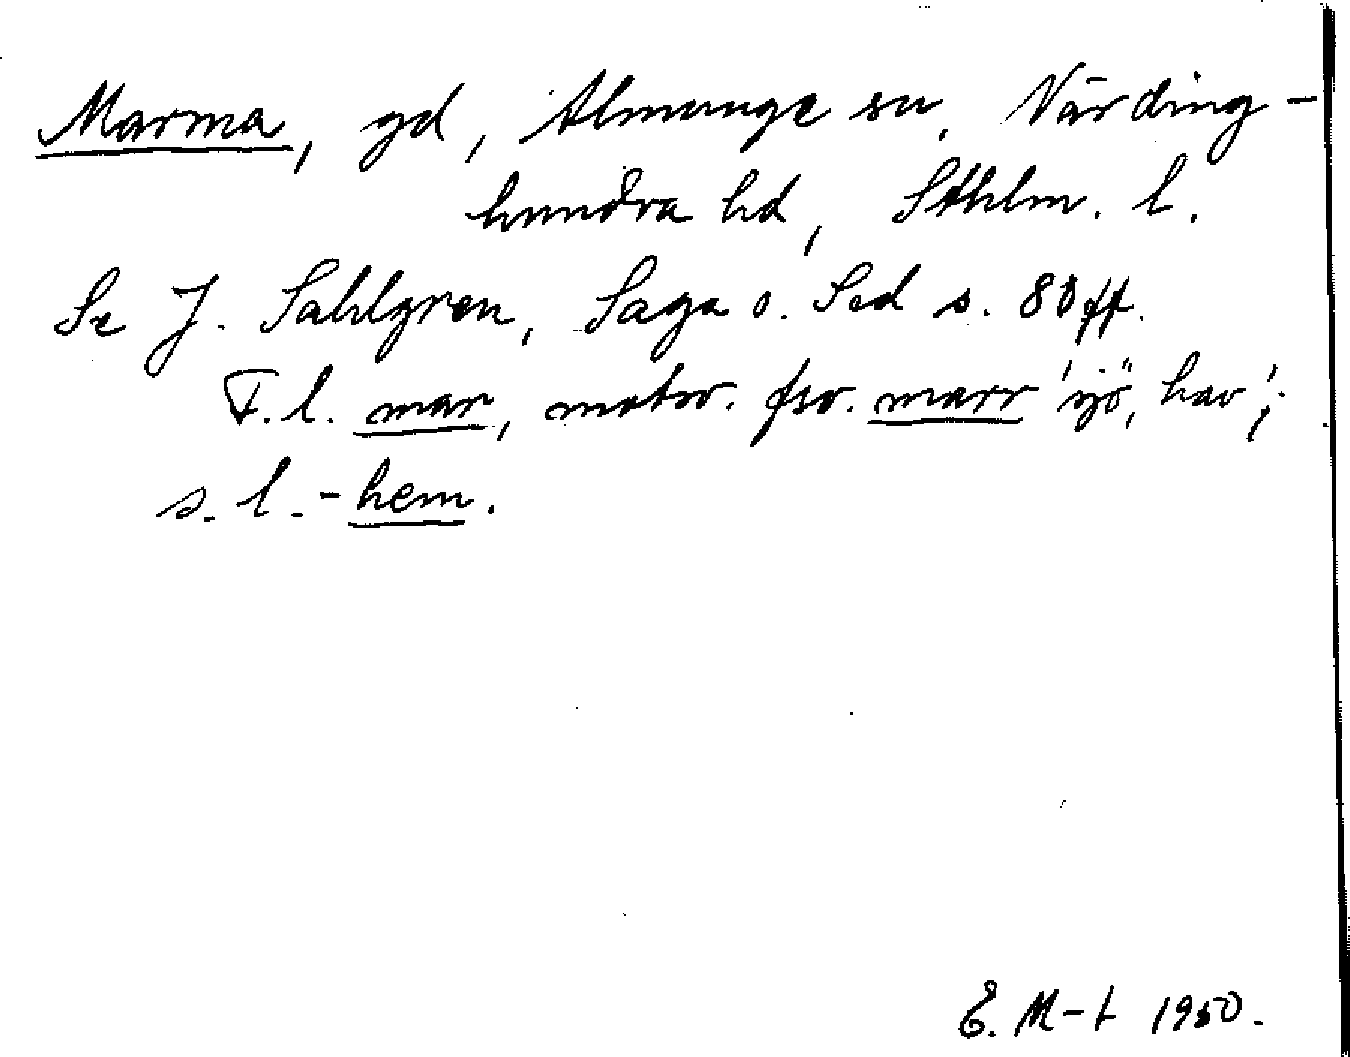 Marma, gd, Almunge sn, Närding-
hundra hd, Sthlm. l.
Se J. Sahlgren, Saga o. Sed s. 80 ff.
F. l. mar, motsv. fsv. marr 'sjö, hav';
s. l. -hem.
E. M-t 1950.